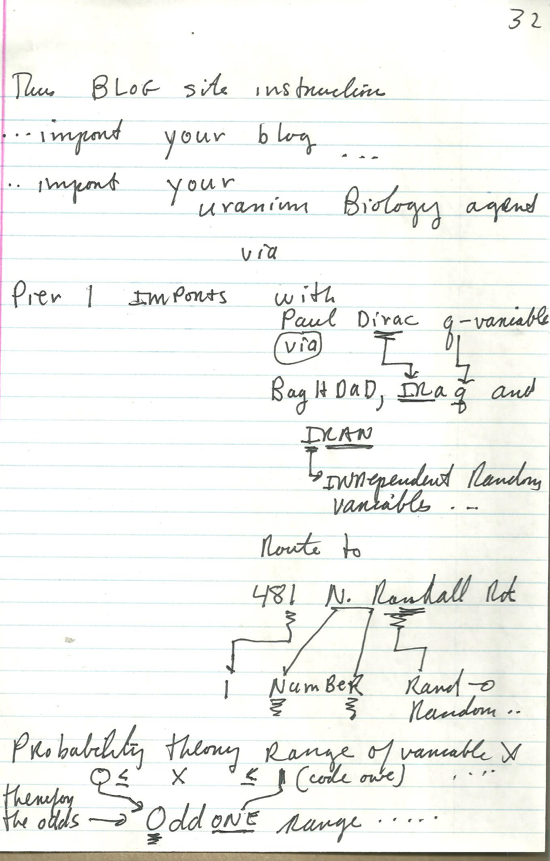 32
Thus BLOG site instruction
...import your blog ...
.. import your
uranium Biology agent
via
Pier 1 Imports with
Paul Dirac q-variable
via
BagHDaD, IRaq and
IRAN
INDependent Random
variables ...
Route to
481 N. Randall Rd
1 NumBeR Rand-o
Random ..
Probability theory Range of variable X
0 ≤ X ≤ 1 (code one) ....
therefore
the odds → Odd ONE range .....